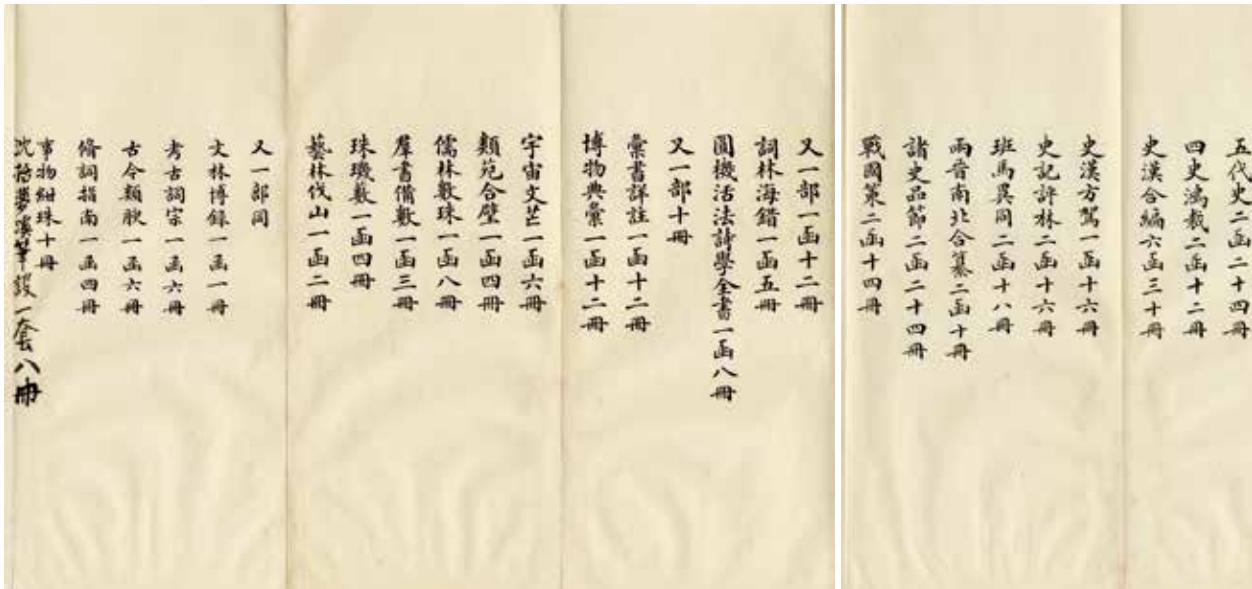 五代史二函二十四冊
四史鴻裁二函十二冊
史漢合編六函三十冊
史漢方駕一函十六冊
史記評林二函十六冊
班馬異同二函十八冊
兩晉南北合纂二函十冊
諸史品節二函二十四冊
戰國策二函十四冊
又一部一函十二冊
詞林海錯一函五冊
圓機活法詩學全書一函八冊
又一部十冊
彙書詳註一函十二冊
博物典彙一函十二冊
宇宙文芒一函六冊
類苑合璧一函四冊
儒林數珠一函八冊
羣書備數一函三冊
珠璣藪一函四冊
藝林伐山一函二冊
又一部同
文林博錄一函一冊
考古詞宗一函六冊
古今類腴一函六冊
脩詞指南一函四冊
事物紺珠十冊
沈括夢溪筆談一套八冊